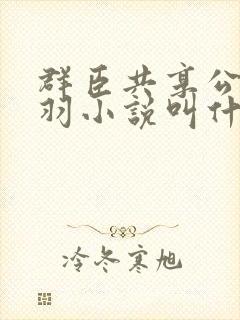 群臣共享公
羽小說叫什
冷冬寒旭